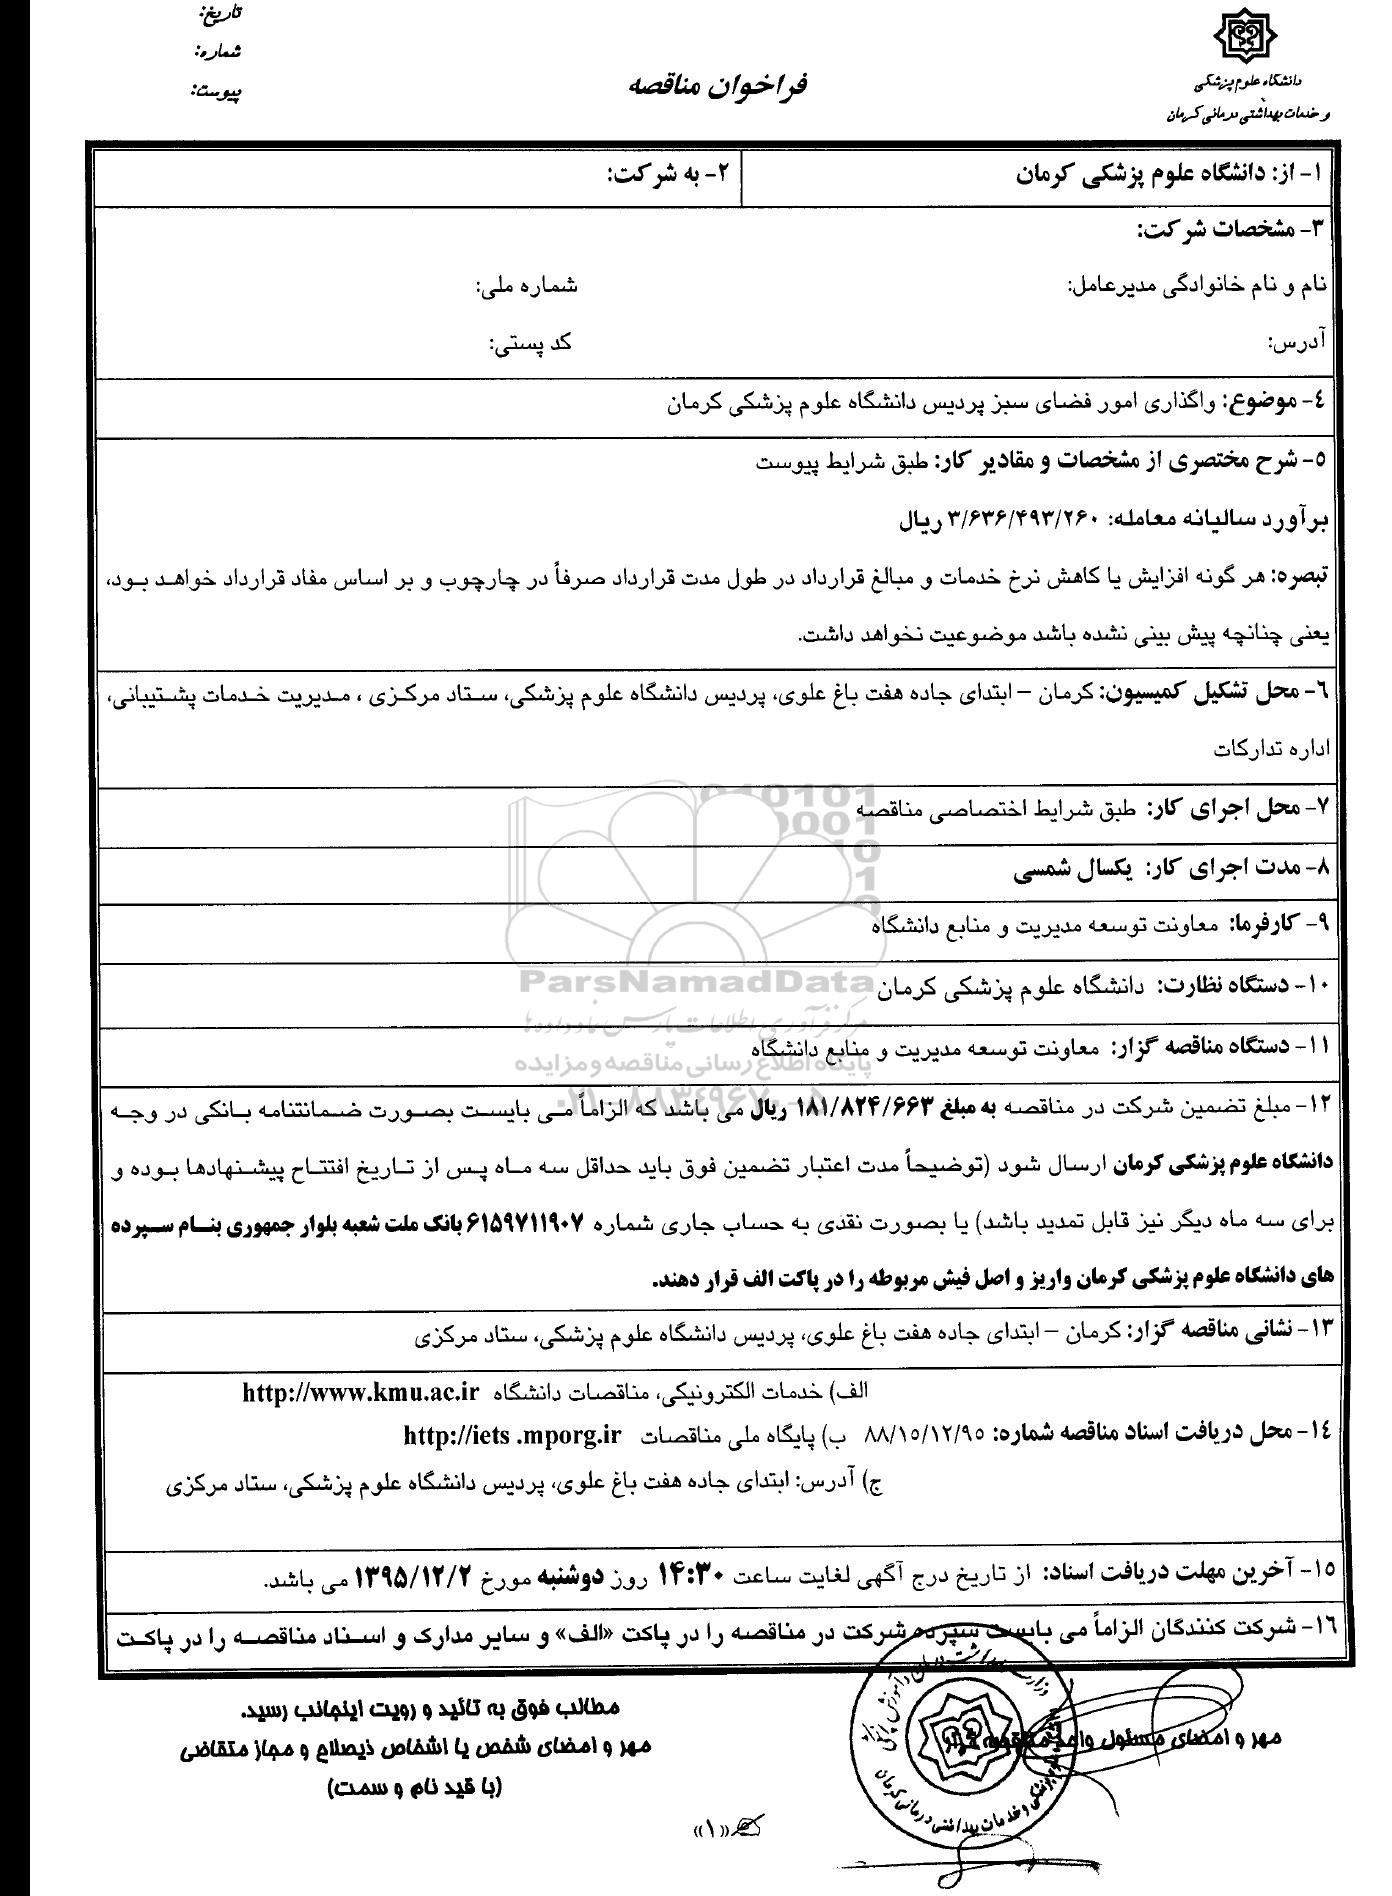 تاریخ:
شماره:
پیوست:
دانشگاه علوم پزشکی
و خدمات بهداشتی درمانی کرمان
فراخوان مناقصه
۱- از: دانشگاه علوم پزشکی کرمان
۲- به شرکت:
۳- مشخصات شرکت:
نام و نام خانوادگی مدیرعامل: شماره ملی:
آدرس: کد پستی:
۴- موضوع: واگذاری امور فضای سبز پردیس دانشگاه علوم پزشکی کرمان
۵- شرح مختصری از مشخصات و مقادیر کار: طبق شرایط پیوست
برآورد سالیانه معامله: ۳/۶۳۶/۴۹۳/۲۶۰ ریال
تبصره: هر گونه افزایش یا کاهش نرخ خدمات و مبالغ قرارداد در طول مدت قرارداد صرفاً در چارچوب و بر اساس مفاد قرارداد خواهد بود،
یعنی چنانچه پیش بینی نشده باشد موضوعیت نخواهد داشت.
۶- محل تشکیل کمیسیون: کرمان – ابتدای جاده هفت باغ علوی، پردیس دانشگاه علوم پزشکی، ستاد مرکزی ، مدیریت خدمات پشتیبانی،
اداره تدارکات
۷- محل اجرای کار: طبق شرایط اختصاصی مناقصه
۸- مدت اجرای کار: یکسال شمسی
۹- کارفرما: معاونت توسعه مدیریت و منابع دانشگاه
ParsNamadData
۱۰- دستگاه نظارت: دانشگاه علوم پزشکی کرمان
۱۱- دستگاه مناقصه گزار: معاونت توسعه مدیریت و منابع دانشگاه
پایگاه اطلاع رسانی مناقصه و مزایده
۰۲۱-۸۸۳۴۹۶۷۰-۵
۱۲- مبلغ تضمین شرکت در مناقصه به مبلغ ۱۸۱/۸۲۴/۶۶۳ ریال می باشد که الزاماً می بایست بصورت ضمانتنامه بانکی در وجه
دانشگاه علوم پزشکی کرمان ارسال شود (توضیحاً مدت اعتبار تضمین فوق باید حداقل سه ماه پس از تاریخ افتتاح پیشنهادها بوده و
برای سه ماه دیگر نیز قابل تمدید باشد) یا بصورت نقدی به حساب جاری شماره ۶۱۵۹۷۱۱۹۰۷ بانک ملت شعبه بلوار جمهوری بنام سپرده
های دانشگاه علوم پزشکی کرمان واریز و اصل فیش مربوطه را در پاکت الف قرار دهند.
۱۳- نشانی مناقصه گزار: کرمان – ابتدای جاده هفت باغ علوی، پردیس دانشگاه علوم پزشکی، ستاد مرکزی
الف) خدمات الکترونیکی، مناقصات دانشگاه http://www.kmu.ac.ir
۱۴- محل دریافت اسناد مناقصه شماره: ۸۸/۱۵/۱۲/۹۵ ب) پایگاه ملی مناقصات http://iets .mporg.ir
ج) آدرس: ابتدای جاده هفت باغ علوی، پردیس دانشگاه علوم پزشکی، ستاد مرکزی
۱۵- آخرین مهلت دریافت اسناد: از تاریخ درج آگهی لغایت ساعت ۱۴:۳۰ روز دوشنبه مورخ ۱۳۹۵/۱۲/۲ می باشد.
۱۶- شرکت کنندگان الزاماً می بایست سپرده شرکت در مناقصه را در پاکت «الف» و سایر مدارک و اسناد مناقصه را در پاکت
مهر و امضای مسئول واحد مناقصه گزار
مطالب فوق به تائید و رویت اینجانب رسید.
مهر و امضای شخص یا اشخاص ذیصلاح و مجاز متقاضی
(با قید نام و سمت)
«۱»